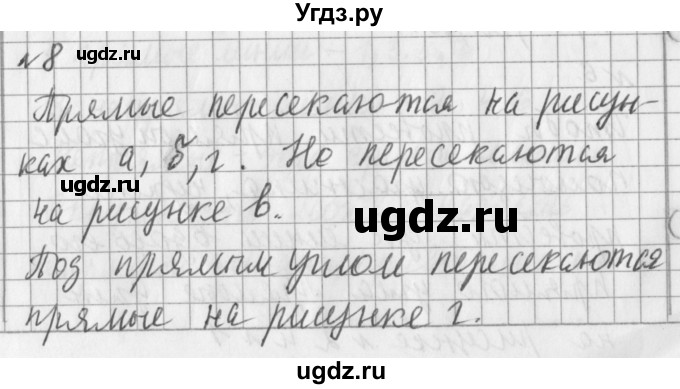 Угдз.ру
№8
ugdz.ru
Прямые пересекаются на рисун-
ugdz.ru
ках а, б, г. Не пересекаются
ugdz.ru
на рисунке в.
ugdz.ru
Под прямым углом пересекаются
прямые на рисунке г.
ugdz.ru
ugdz.ru